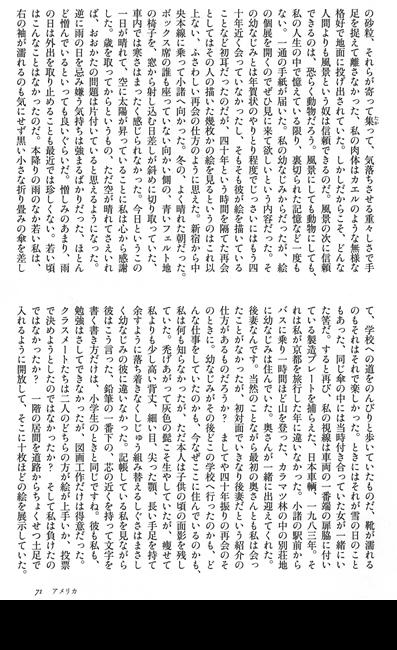 の砂粒、それらが寄って集って、気落ちさせる重々しさで手
足を捉えて離さなかった、私の肉体はカエルのような無様な
格好で地面に投げ出されていた。しかしだからこそ、どんな
ときでも、風景という奴は信頼できるのだ。風景の次に信頼
できるのは、恐らく動物だろう。風景にしても動物にしても、
私の人生の中で憶えている限り、裏切られた記憶など一度も
ない。一通の手紙が届いた。私の幼なじみからだったが、絵
の個展を開くのでぜひ見に来て欲しいという内容だった。そ
の幼なじみとは年賀状のやりとり程度でじっさいにはもう四
十年近く会っていなかったし、そもそも彼が絵を描いている
ことなど初耳だったのだが、四十年という時間を隔てた再会
としてはその人の描いた幾枚かの絵を見るというのはこれ以
上ない、ふさわしい再会の仕方のように思えた。新宿から中
央本線に乗って小諸へ向かった。冬の、よく晴れた朝だった。
ボックス席の誰も座っていない向かい側の、青いフェルト地
の椅子を、窓から射しこむ日差しが斜めに切り取っていた、
車内では寒さはまったく感じられなかった。今日というこの
一日が晴れて、空に太陽が昇っていることに私は心から感謝
した。歳を取ってからというもの、ただ空が晴れてさえいれ
ば、おおかたの問題は片付いているとも思えるようになった。
逆に雨の日を忌み嫌う気持ちは強まるばかりだった、ほとん
ど憎んでいるといっても良いぐらいだ。憎しみのあまり、雨
の日は外出を取り止めることも最近では珍しくない。若い頃
はこんなことはなかったのだ。本降りの雨のなか若い私は、
右の袖が濡れるのも気にせず黒い小さな折り畳みの傘を差し
て、学校への道をのんびりと歩いていたものだ、靴が濡れる
のもそれはそれで楽しかった。ときにはそれが雪の日のこと
もあった、同じ傘の中には当時付き合っていた女が一緒にい
た筈だ。すると再び、私の視線は車両の一番端の扉脇に付い
ている製造プレートを捕らえた、日本車輌、一九八三年。そ
れは私が京都を旅行した年に違いなかった。小諸の駅前から
バスに乗り一時間ほど山を登った、カラマツ林の中の別荘地
に幼なじみは住んでいた。奥さんが一緒に出迎えてくれた。
後妻なんです。当然のことながら最初の奥さんとも私は会っ
たことがなかったが、初対面でいきなり後妻だという紹介の
仕方があるものだろうか？　ましてや四十年振りの再会のそ
のときに。幼なじみがその後どこの学校へ行ったのかも、ど
んな仕事をしていたのかも、今なぜここに住んでいるのかも、
私は何も知らなかったが、ただ本人は子供の頃の面影を残し
ていた。禿げあがって灰色の髭こそ生やしていたが、痩せて
私よりも少し高い背丈、細い目、尖った顎、長い手足を持て
余すように落ち着きなくしじゅう組み替えるしぐさはまさし
く幼なじみの彼に違いなかった。記帳している私を見ながら
彼はこう言った、鉛筆の一番下の、芯の近くを持って文字を
書く書き方だけは、小学生のときと同じですね。彼も私も、
勉強はさしてできなかったが、図画工作だけは得意だった。
クラスメートたちは二人のどちらの方が絵が上手いか、投票
で決めようとしたのではなかったか？　そして私は負けたの
ではなかったか？　一階の居間を道路からちょくせつ土足で
入れるように開放して、そこに十枚ほどの絵を展示していた。
71　アメリカ